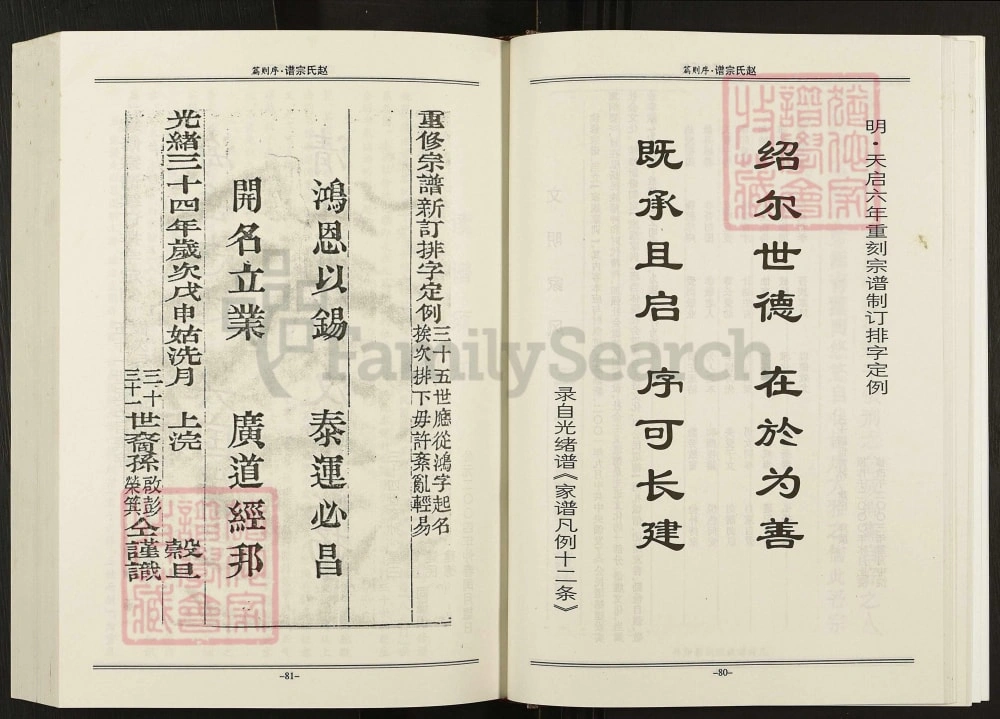 赵氏宗谱·序则篇
明·天启六年重刻宗谱制订排字定例
绍尔世德 在於为善
既承且启 序可长建
录自光绪谱《家谱凡例十二条》
猶他家
譜學會
收藏
-80-
赵氏宗谱·序则篇
重修宗譜新訂排字定例
三十五世應從鴻字起名
挨次排下毋許紊亂輕易
鴻恩以錫 泰運必昌
開名立業 廣道經邦
光緒三十四年歲次戊申姑洗月 上浣 穀旦
三十
三十一
世裔孫
啟彭
榮箕
仝謹識
猶他家
譜學會
收藏
-81-
FamilySearch